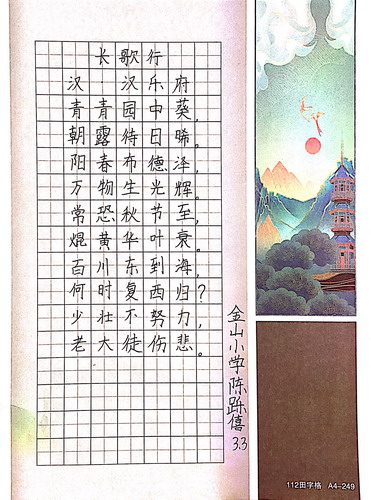 长歌行
汉·汉乐府
青青园中葵,
朝露待日晞。
阳春布德泽,
万物生光辉。
常恐秋节至,
焜黄华叶衰。
百川东到海,
何时复西归?
少壮不努力,
老大徒伤悲。
金山小学陈跞僖
3.3
112田字格 A4-249